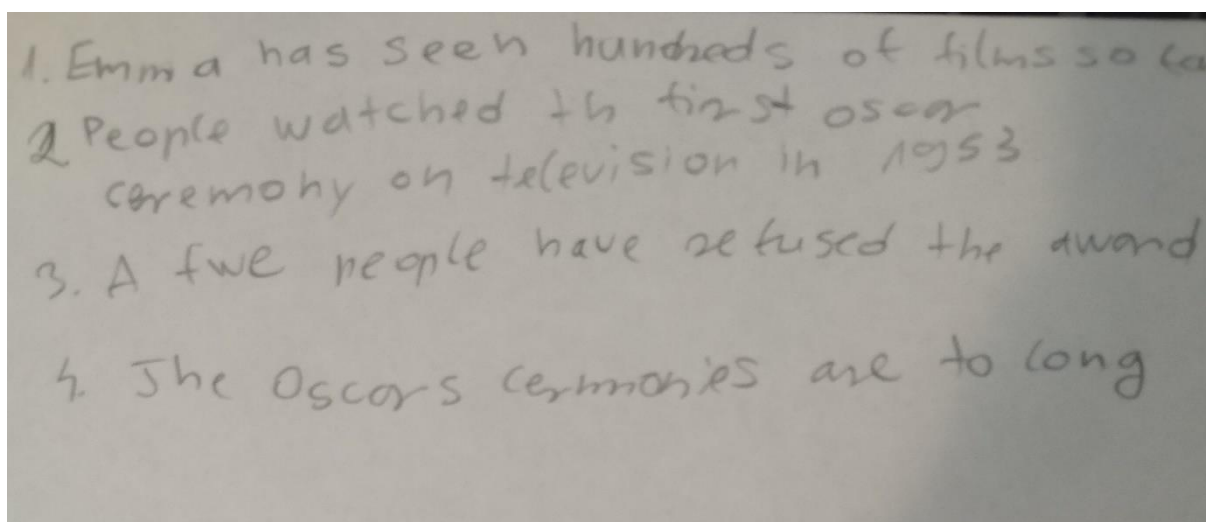 1. Emma has seen hundreds of films so
2 People watched th first oscar
ceremony on television in 1953
3. A fwe people have refused the award
4. The Oscars cermonies are to long